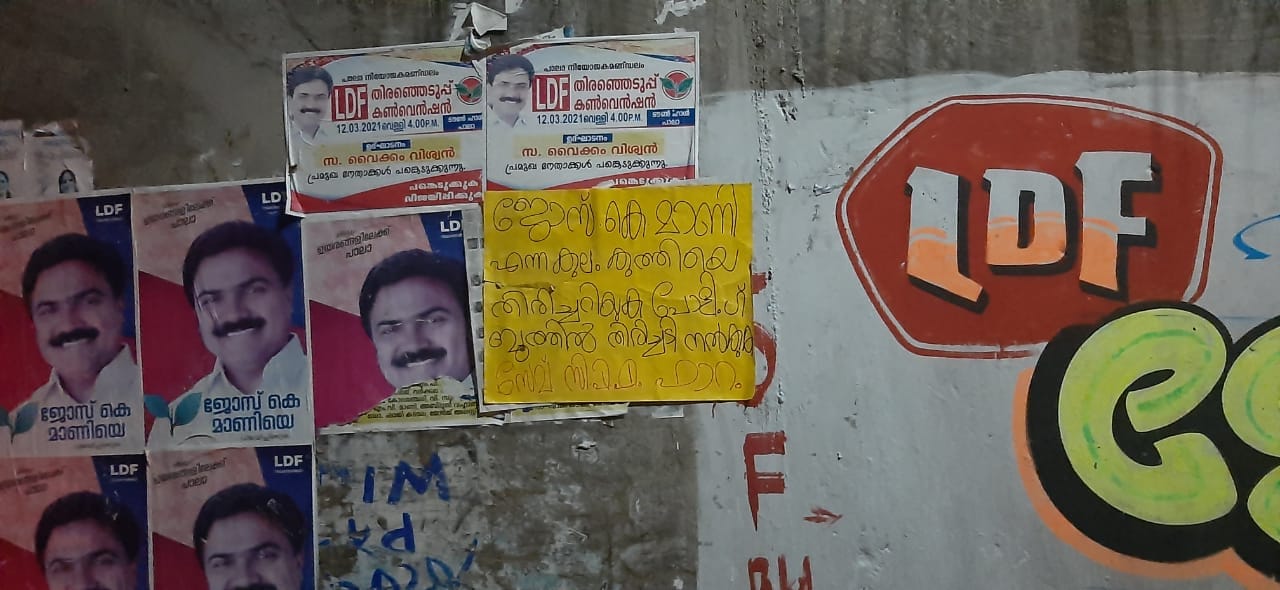 പാലാ നിയോജകമണ്ഡലം
LDF തിരഞ്ഞെടുപ്പ്
കൺവെൻഷൻ
12.03.2021 വെള്ളി 4.00P.M. ടൗൺ ഹാൾ പാലാ
ഉദ്ഘാടനം
സ. വൈക്കം വിശ്വൻ
പ്രമുഖ നേതാക്കൾ പങ്കെടുക്കുന്നു.
പങ്കെടുക്കുക
വിജയിപ്പിക്കുക
പാലാ നിയോജകമണ്ഡലം
LDF തിരഞ്ഞെടുപ്പ്
കൺവെൻഷൻ
12.03.2021 വെള്ളി 4.00P.M. ടൗൺ ഹാൾ പാലാ
ഉദ്ഘാടനം
സ. വൈക്കം വിശ്വൻ
പ്രമുഖ നേതാക്കൾ പങ്കെടുക്കുന്നു.
പങ്കെടുക്കുക
ജോസ് കെ മാണി
എന്ന കുലം കുത്തിയെ
തിരിച്ചറിയുക പോളിംഗ്
ബൂത്തിൽ തിരിച്ചടി നൽകുക
സേവ് സിപിഎം ഫോറം
LDF
LDF
ഉയരങ്ങളിലേക്ക്
പാലാ
ജോസ് കെ
മാണിയെ
LDF
ഉയരങ്ങളിലേക്ക്
പാലാ
ജോസ് കെ
മാണിയെ
LD
ഉയരങ്ങളിലേക്ക്
പാലാ
LDF
പാലാ
LDF
ഉയരങ്ങളിലേക്ക്
പാലാ
F